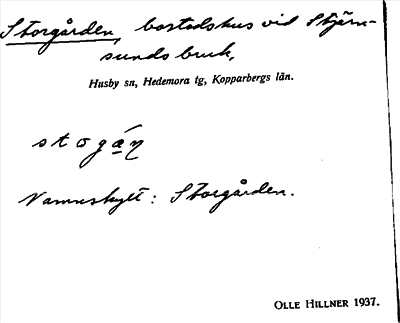 Storgården, bostadshus vid Stjärn-
sunds bruk,
Husby sn, Hedemora tg, Kopparbergs län.
Namnskylt: Storgården.
OLLE HILLNER 1937.